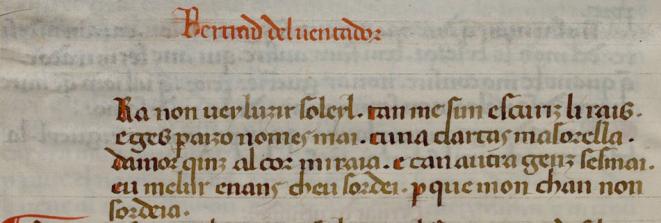 Bertrad del uentador
Ra non uei luzir soleil. tan me sun escuriz li rais.
e ges p aizo nomes mai. cuna clartaz masorella.
damor qinz al cor mi raia. e can autra genz sesmai.
eu meliur enanz cheu sordei. p que mon chan non
sordeia.